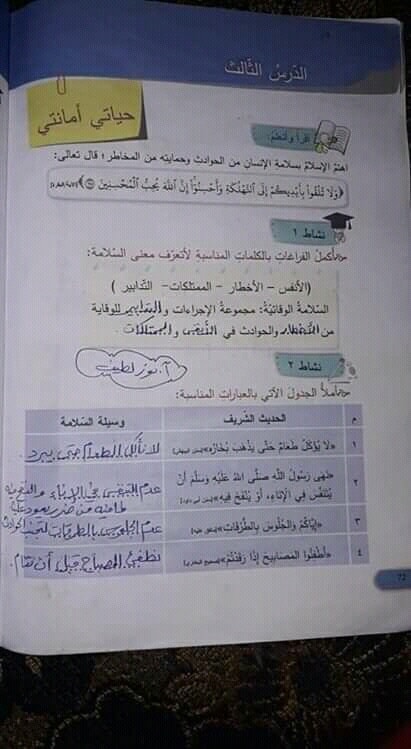 الدرس الثالث
حياتي أمانتي
أقرأ وأتعلم:
اهتم الإسلام بسلامة الإنسان من الحوادث وحمايته من المخاطر؛ قال تعالى:
﴿وَلَا تُلْقُوا بِأَيْدِيكُمْ إِلَى التَّهْلُكَةِ وَأَحْسِنُوا إِنَّ اللَّهَ يُحِبُّ الْمُحْسِنِينَ﴾
نشاط ١
أكمل الفراغات بالكلمات المناسبة لأتعرف معنى السلامة:
(الأنفس – الأخطار – الممتلكات – التدابير )
السلامة الوقائية: مجموعة الإجراءات والتدابير للوقاية
من الأخطار والحوادث في الأنفس والممتلكات.
نشاط ٢
أ. نور لطيف
أملأ الجدول الآتي بالعبارات المناسبة:
م الحديث الشريف وسيلة السلامة
١ «لا يُؤْكَلُ طَعَامٌ حَتَّى يَذْهَبَ بُخَارُهُ» لا نأكل الطعام حتى يبرد.
٢ «نَهَى رَسُولُ اللَّهِ صَلَّى اللَّهُ عَلَيْهِ وَسَلَّمَ أَنْ يُتَنَفَّسَ فِي الإِنَاءِ، أَوْ يُنْفَخَ فِيهِ» عدم التنفس في الإناء والنفخ فيه لما فيه من ضرر يعود على
٣ «إِيَّاكُمْ وَالْجُلُوسَ بِالطُّرُقَاتِ» عدم الجلوس بالطرقات لتجنب الحوادث
٤ «أَطْفِئُوا الْمَصَابِيحَ إِذَا رَقَدْتُمْ» نطفئ المصباح قبل أن ننام.